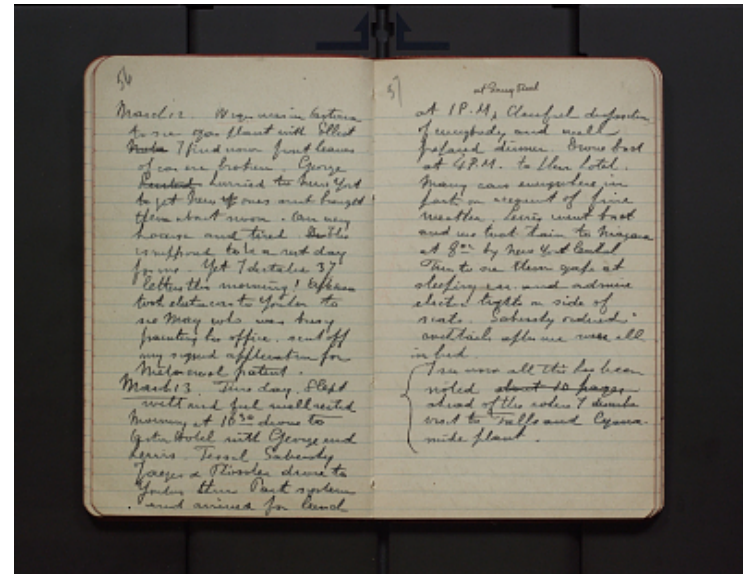 56
March 12. was in
to see gas plant with Elliot
I find now front leaves
of car are broken. George
hurried to New York
to get new ones and brought
them about noon. Am very
hoarse and tired. This
is supposed to be a rest day
for me. Yet I dictated 37
letters this morning!
took electric car to Yonkers to
see May who was busy
painting his office. sent off
my signed application for
patent.
March 13. Fine day. Slept
well and feel well rested
Morning at 10 30 drove to
Astor Hotel with George and
Lewis. Tessel Sabersky
Jaeger & drove to
Yonkers thru Park system
and arrived for lunch
57
at Snug Rock
at 1 P.M. Cheerful disposition
of everybody and well
prepared dinner. Drove back
at 4 P.M. to their hotel.
Many cars everywhere in
part on account of fine
weather. Lewis went back
and we took train to Niagara
at 8 00 by New York Central
Fun to see them gape at
sleeping car and admire
electric lights on side of
seats. Sabersky ordered
cocktails after we were all
in bed.
I see now all this has been
noted about 10 pages
ahead of this where I describe
visit to Falls and Cyana-
mide plant.